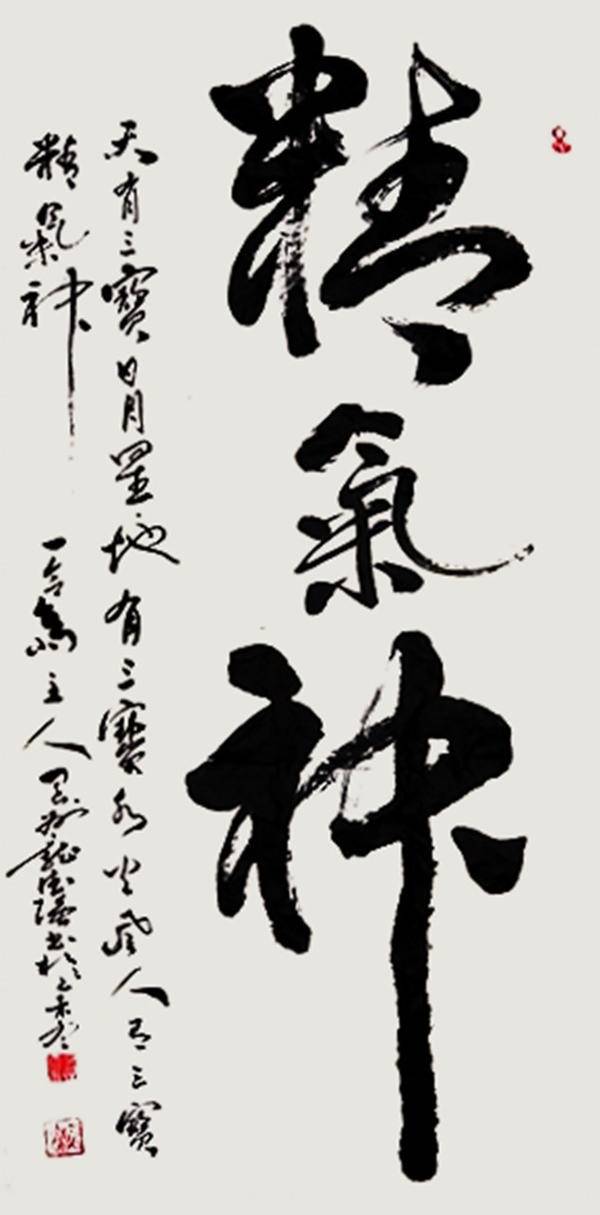 精氣神
天有三寶日月星地有三寶水火風人有三寶
精氣神 主人 書於乙未冬